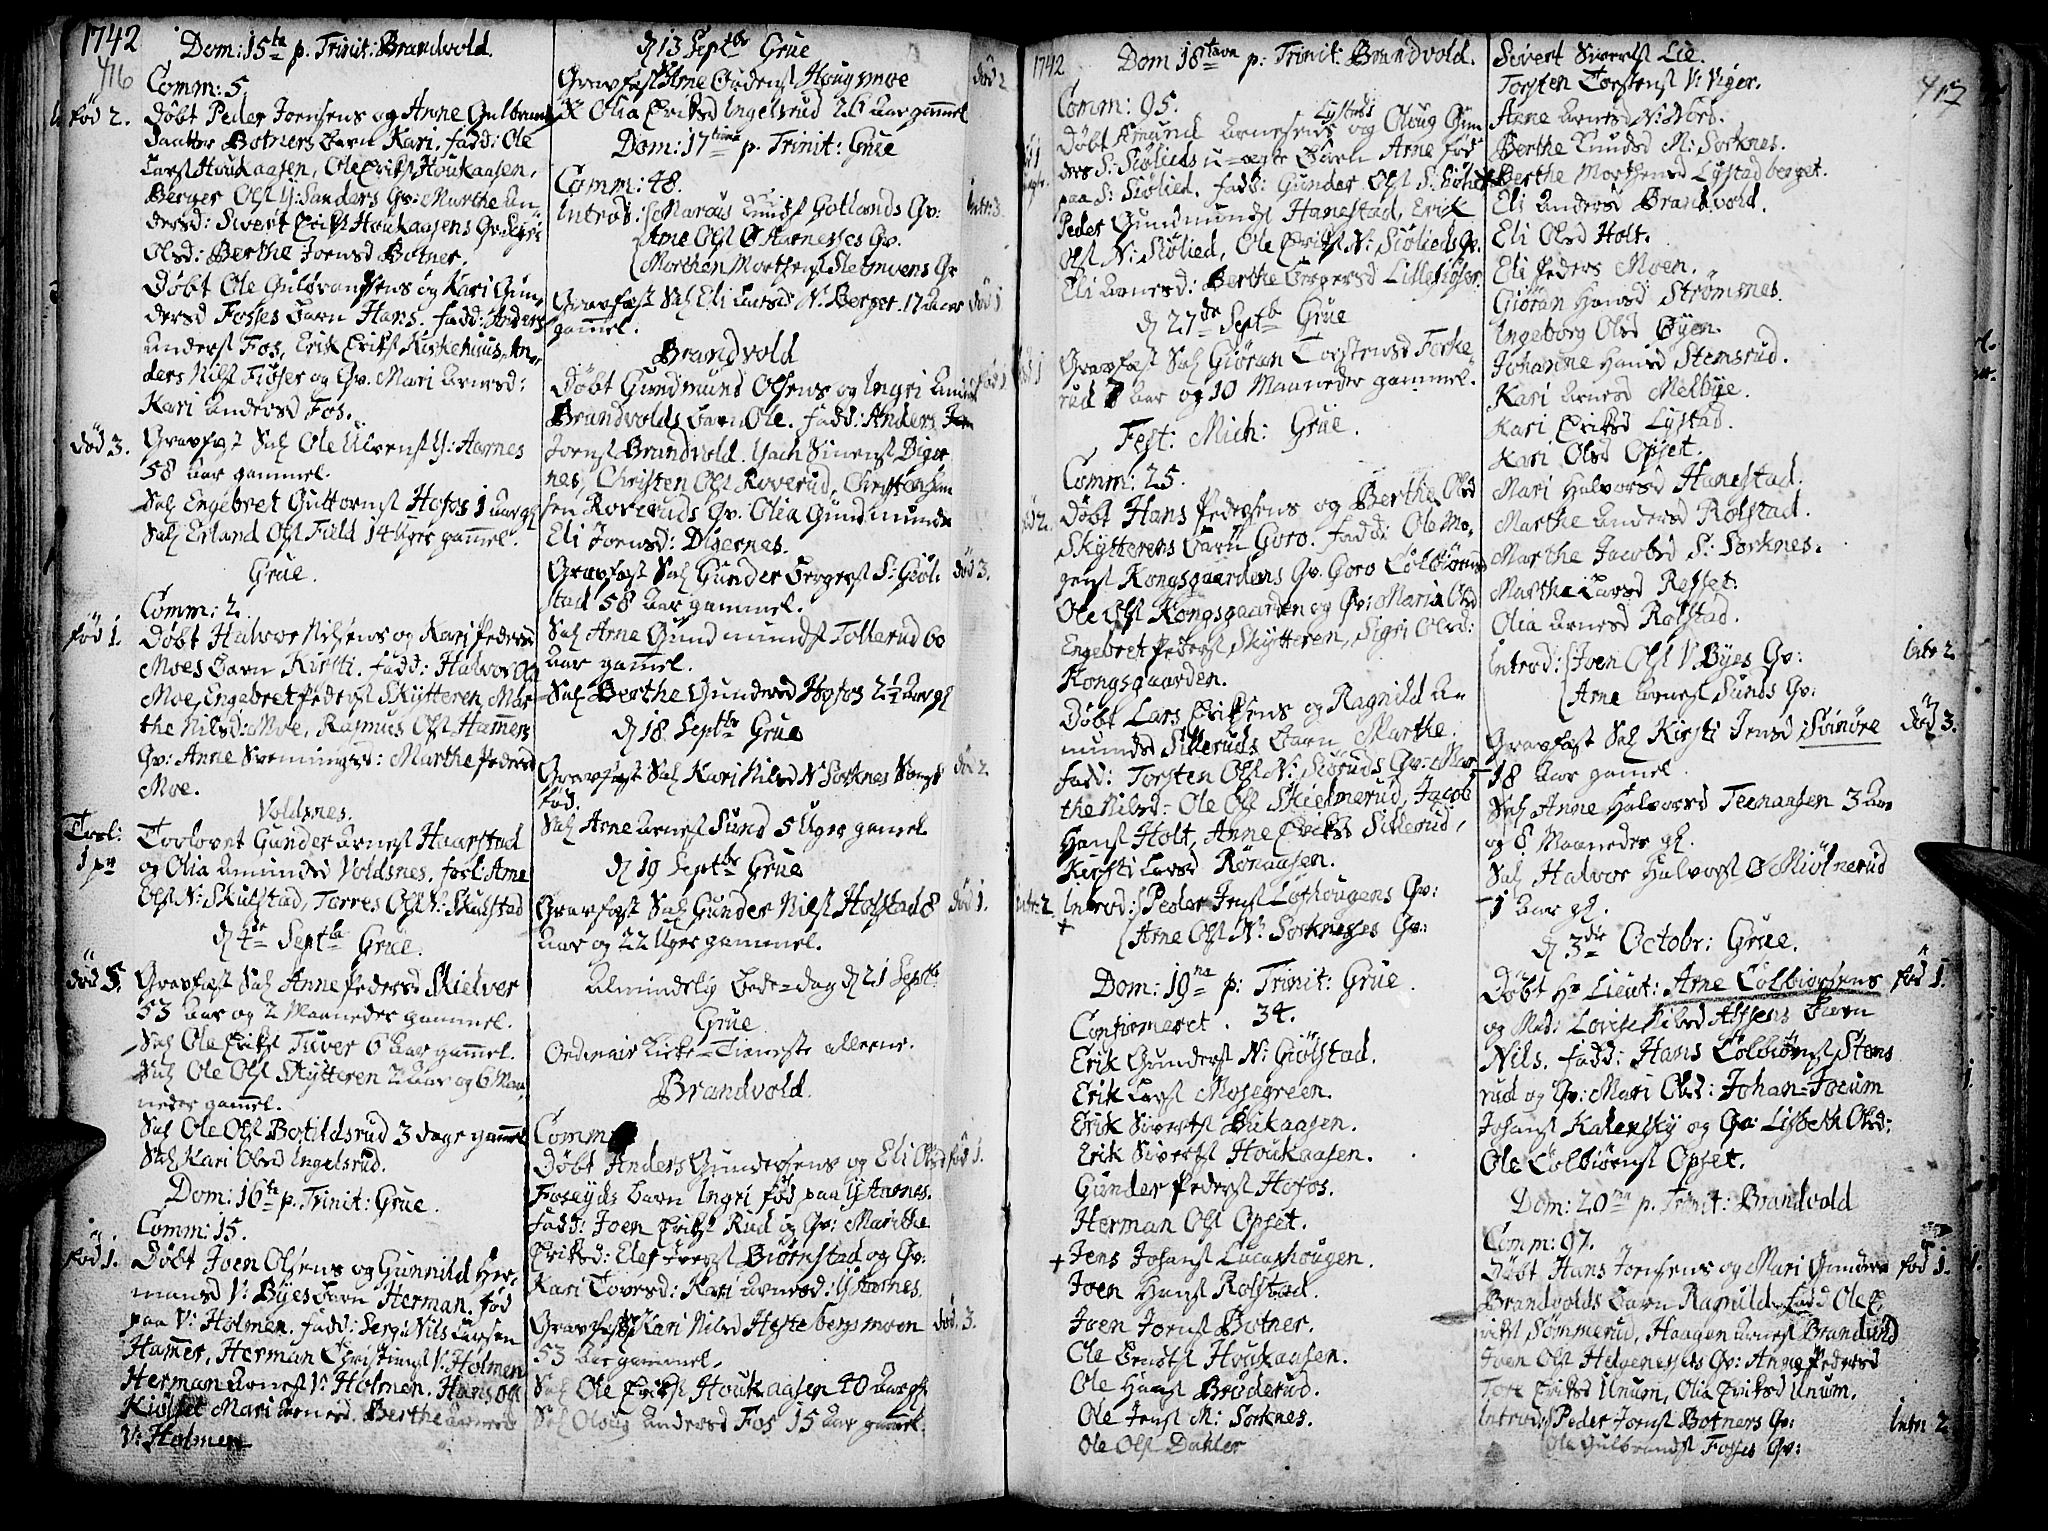 1742
416
Dom: 15ta p. Trinit: Brandvold.
Comm: 5.
fød 2. Døbt Peder Joensens og Anne Gulbrands
daatter Botners Barn Kari. fadd: Ole
Larsf Houkaasen, Ole Eriksf Houkaasen,
Berger Olsf Y: Sanders Qv: Marthe An
dersd: Sivert Eriksf Houkaasens Qv: Sigri
Olsd: Berthe Joensd Botner.
Døbt Ole Gulbrandsens og Kari Gun,
dersd Fosses Barn Hans. fadd: Anders
Andersf Fos, Erik Eriksf Kirkehuus, An,
ders Nilsf Fiøser og Qv. Mari Arnesd:
Kari Andersd Fos.
død 3. Gravfæst Sal Ole Alvensf Y: Aarnes
58 Aar gammel.
Sal Engebret Guttormsf Hofos 1 Aar gl
Sal Erland Olsf Field 14 Uger gammel.
Grue.
Comm: 2.
fød 1. Døbt Halvor Nilsens og Kari Pedersd
Moes Barn Kirsti. fadd: Halvor Ols
Moe, Engebret Pedersf Skytteren, Mar
the Nilsd: Moe, Rasmus Olsf Hamers
Qv: Anne Svenningsd: Marthe Pedersd
Moe.
Voldsnes.
Trol: 1 pr
Trolovet Gunder Arnesf Haarstad
og Olia Amundsd Voldsnes. forl: Arne
Olsf N: Skulstad, Torres Olsf N: Skulstad
d 4de Septb Grue.
død 5. Gravfæst Sal Anne Pedersd Skielver
53 Aar og 2 Maaneder gammel.
Sal Ole Eriksf Tuver 6 Aar gammel.
Sal Ole Olsf Skytteren 2 Aar og 6 Maa,
neder gammel.
Sal Ole Olsf Botildsrud 3 dage gammel
Sal Kari Olsd Ingelsrud.
Dom: 16ta p. Trinit: Grue.
Comm: 15.
fød 1. Døbt Joen Olsens og Gunnild Her,
mansd V: Byes Barn Herman. fød
paa V: Holmen. fadd: Serg: Nils Larsen
Hamer, Herman Christiensf V: Holmen
Herman Arnesf V: Holmen. Hans Olsf
Kiølset Mari Arnesd. Berthe Arnesd
V: Holmen
d 13 Septb Grue
død 2 Gravfæst Arne Ordensf Hougsmoe
Olia Eriksd Ingelsrud 26 Aar gammel
Dom: 17tima p. Trinit: Grue
Comm: 48.
Introd: Marcus Knudsf Gotlands Qv: Intr: 3.
Arne Olsf Ø Aarnesses Qv.
Morthen Morthensf Sletmoens Qv
Gravfæst Sal Eli Larsd N: Berger. 17 Aar død 1
gammel.
Brandvold
Døbt Gundmund Olsens og Ingri Andersd fød 1
Brandvolds Barn Ole. fadd: Anders
Joensf Brandvold. Zach: Simensf Diger
nes, Christen Olsf Roverud, Christ: Johan
sen Roveruds Qv. Olia Gundmundsd
Eli Joensd: Digernes.
Gravfæst Sal Gunder Bergersf S: Giøl. død 3.
stad 58 Aar gammel.
Sal Arne Gundmundsf Tollerud 60
Aar gammel.
Sal Berthe Gundersd Hofos 2½ Aar gl
d 18 Septbr Grue
Gravfæst Sal Kari Nilsd N: Sorknes død 2
fød.
Sal Arne Arnesf Sund 5 Uger gamel.
d 19 Septbr Grue
Gravfæst Sal Gunder Nilsf Holstad 8 død 1.
Aar og 22 Uger gammel.
Almindelig Bede-dag d 21 Septb
Grue
Ordinair Kirke-Tieneste alleene.
Brandvold.
Comm
Døbt Anders Gundersens og Eli Olsd fød 1.
Fosøyds Barn Ingri fød paa Y Aarnes.
fadd: Joen Eriksf Rud og Qv: Marthe
Eriksd: Elef Iversf Biørnstad og Qv:
Kari Toresd: Kari Arnesd: Y Aarnes.
Gravfæst Kari Nilsd Hestebergsmoen død. 3.
53 Aar gammel.
Sal Ole Eriksf Houkaasen 40 Aar gl
Sal Oloug Andersd Fos 15 Aar gammel.
1742
Dom 18tava p: Trinit: Brandvold.
Comm: 95.
Lystads
Døbt Amund Arnesens og Oloug Gun
ders S: Siølieds u-ægte Barn Arne fød
paa S: Siølied. fadd: Gunder Olsf S: Siølied
Peder Gundmundsf Hanestad, Erik
Olsf N: Siølied, Ole Eriksf N: Siølieds Qv.
Eli Arnesd: Berthe Bergersd Lillesiøser.
d 27de Septb Grue
Gravfæst Sal Giøran Torstensd Forke,
rud 7 Aar og 10 Maaneder gammel.
Fest: Mich: Grue.
Comm: 25.
Døbt Hans Pedersens og Berthe Olsd
Skytterens Barn Goro. fadd: Ole Mo,
gensf Kongsgaardens Qv. Goro Colbiørnsd
Ole Olsf Kongsgaarden og Qv: Maria Olsd
Engebret Pedersf Skytteren, Sigri Olsd:
Kongsgaarden.
Døbt Lars Eriksens og Ragnild A=
mundsd Sillerud: Barn Marthe.
fadd: Torsten Olsf N: Siøruds Qv: Mar
the Nilsd: Ole Olsf Skielmerud, Jacob
Hansf Holt, Anne Eriksd Sillerud,
Kirsti Larsd Rønaasen.
intr: 2 Introd: Peder Jensf Løthougens Qv:
+ Arne Olsf N: Sorknesses Qv:
Dom: 19na p: Trinit: Grue.
Confirmeret . 34.
Erik Gundersf N: Giølstad.
Erik Larsf Mosegreen.
Erik Sivertsf Bukaasen.
Erik Sivertsf Houkaasen.
Gunder Pedersf Hofos.
Herman Olsf Opset.
+ Jens Johansf Lucashougen.
Joen Hansf Rolstad.
Joen Joensf Botner.
Ole Berntsf Houkaasen.
Ole Hansf Brøderud.
Ole Jensf M: Sorknes.
Ole Olsf Dahler
417
Sivert Siversf Lie.
Torsten Torstensf V: Viger.
Anne Arnesd N: Nord.
Berthe Knudsd M: Sorknes.
Berthe Morthensd Lystadberget.
Eli Andersd Brandvold.
Eli Olsd Holt.
Eli Peders Moen.
Giøran Hansd Strømsnes.
Ingeborg Olsd Øyen.
Johanne Hansd Stemsrud.
Kari Arnesd Melbye.
Kari Eriksd Lystad.
Kari Olsd Opset.
Mari Halvorsd Hanestad.
Marthe Andersd Rolstad.
Marthe Jacobsd S: Sorknes.
Marthe Larsd Rosset.
Olia Arnesd Rolstad.
Introd: Joen Olsf V: Byes Qv: Intr 2.
Arne Arnesf Sunds Qv:
Gravfæst Sal Kirsti Jensd Svinøre død 3.
18 Aar gamel.
Sal Anne Halvorsd Teenaasen 3 Aar
og 8 Maaneder gl.
Sal Halvor Halvorsf Ø Miølnerud
1 Aar gl.
d 3die Octobr: Grue.
Døbt Hr Lieut: Arne Colbiørsens fød 1.
og Mad: Lovise Nilsd Alssens Barn
Nils. fadd: Hans Colbiørnsf Stems
rud og Qv: Mari Olsd: Johan-Jocum
Johansf Kalensky og Qv: Lisbeth Olsd:
Ole Colbiørnsf Opset.
Dom: 20ma p. Trinit: Brandvold
Comm: 97.
Døbt Hans Jensens og Mari Gundersd fød 1.
Brandvolds Barn Ragnild. fadd Ole E,
riksf Sømmerud, Haagen Arnesf Brandvold
Joen Olsf Helgenesseds Qv: Anne Pedersd
Tore Eriksd Unum, Olia Eriksd Unum.
Introd: Peder Joensf Botners Qv: Intr: 2
Ole Gulbrandsf Fosses Qv: